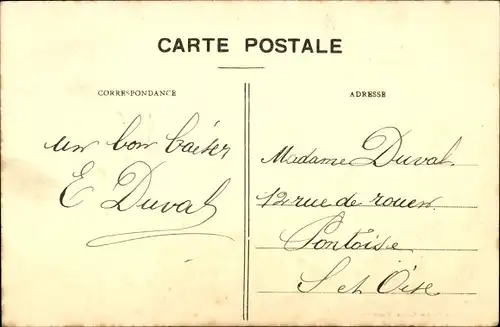 CARTE POSTALE
CORRESPONDANCE
ADRESSE
un bon baiser
E Duval
Madame Duval
12 rue de rouen
Pontoise
S et Oise